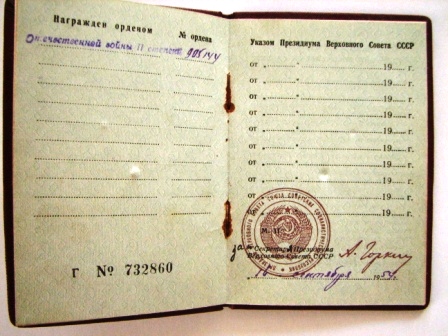 Награжден орденом № ордена
Отечественной войны II степени 905144
Г № 732860
Указом Президиума Верховного Совета СССР
от „ “ 19 г.
от „ “ 19 г.
от „ “ 19 г.
от „ “ 19 г.
от „ “ 19 г.
от „ “ 19 г.
от „ “ 19 г.
от „ “ 19 г.
от „ “ 19 г.
М. П.
Секретарь Президиума
Верховного Совета СССР А. Горкин
сентября 195